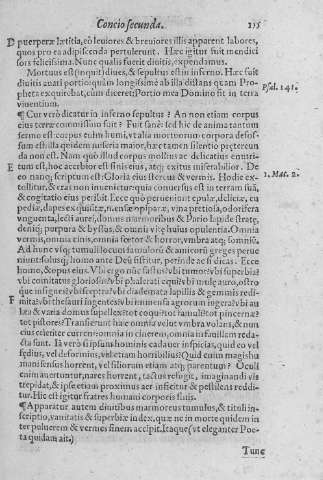 Concio secunda. 215
D puerperæ lætitia, eò leuiores & breuiores illis apparent labores,
quos pro ea adipiscenda pertulerunt. Hæc igitur fuit mendici
sors felicissima. Nunc qualis fuerit diuitis, expendamus.
Mortuus est (inquit) diues, & sepultus est in inferno. Hæc fuit
diuitis auari portio: quàm longissimè ab illa distans quam Pro-
pheta exquirebat, cum diceret: Portio mea Domino sit in terra
viuentium.
Psal. 141.
¶ Cur verò dicatur in inferno sepultus? An non etiam corpus
eius terræ commissum fuit? Fuit sanè: sed hic de anima tantum
sermo est: corpus enim humi, vt alia mortuorum corpora defos-
sum est: illa quidem miseria maior, hæc tamen silentio prætereun
da non est. Nam quò illud corpus mollius ac delicatius enutri-
E tum est, hoc acerbior est finis eius, atq; exitus miserabilior. De
eo nanq; scriptum est: Gloria eius stercus & vermis. Hodie ex-
tollitur, & cras non inuenietur: quia conuersus est in terram suã,
& cogitatio eius peribit. Ecce quò perueniunt epulæ, deliciæ, cu
1. Mac. 2.
pediæ, dapes exquisitæ, mensæ opiparæ, vina pretiosa, odorifera
vnguenta, lecti aurei, domus marmoribus & Pario lapide stratæ,
deniq; purpura & byssus, & omnis vitæ huius opulentia. Omnia
vermis, omnia cinis, omnia fœtor & horror, vmbra atq; somnus.
Ad hunc vsq; tumulũ
homo, & opus eius. Vbi ergo nũc fastus? vbi tumor? vbi superbia?
vbi comitatus gloriosus? vbi phalerati equi? vbi mulæ auro, ostro
que insignes? vbi sceptra? vbi diademata lapillis & gemmis redi-
F mita? vbi thesauri ingentes? vbi immensa agrorum iugera? vbi au
lea & varia domus supellex? tot coqui? tot famuli? tot pincernæ?
tot pistores? Transierunt hæc omnia velut vmbra volans, & nun
cius celeriter currens: omnia in cinerem, omnia in fauillam reda-
cta sunt. Iã verò si ipsum hominis cadauer inspicias, quid eo vel
fœdius, vel deformius, vel etiam horribilius? Quid enim magis hu
mani sensus horrent, vel filiorum etiam atq; parentum? Oculi
enim auertuntur, nares horrent, tactus refugit, imaginandi vis
trepidat, & ipse etiam proximus aer inficitur & pestilens reddi-
tur. Hic est igitur fratres humani corporis finis.
¶ Apparatur autem diuitibus marmoreus tumulus, & tituli in-
scriptio, vanitatis & superbiæ index, quæ ne in morte quidem in-
ter puluerem & vermes finem accipit. Itaque (vt eleganter Poe-
ta quidam ait)
Tunc